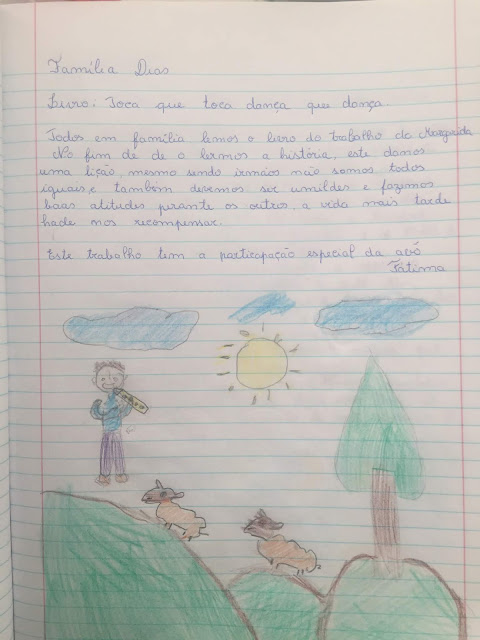 Família Dias
Livro: Toca que toca dança que dança.
Todos em família lemos o livro do trabalho da Margarida
No fim de de o lermos a história, este damos
uma lição, mesmo sendo irmãos não somos todos
iguais, e também devemos ser umildes e fazemos
boas atitudes perante os outros, a vida mais tarde
hade nos recompensar.
Este trabalho tem a particapação especial da avó
Fátima